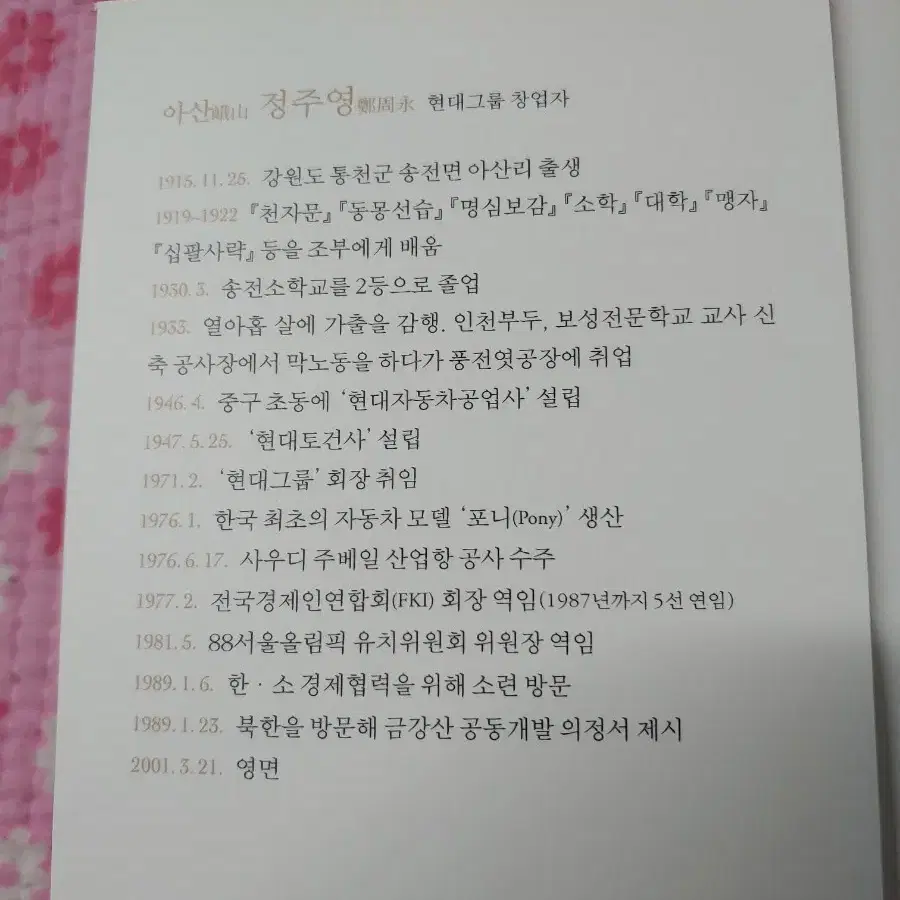 아산峨山 정주영鄭周永 현대그룹 창업자
1915. 11. 25. 강원도 통천군 송전면 아산리 출생
1919~1922 『천자문』『동몽선습』『명심보감』『소학』『대학』『맹자』
『십팔사략』 등을 조부에게 배움
1930. 3. 송전소학교를 2등으로 졸업
1933. 열아홉 살에 가출을 감행. 인천부두, 보성전문학교 교사 신
축 공사장에서 막노동을 하다가 풍전엿공장에 취업
1946. 4. 중구 초동에 ‘현대자동차공업사’ 설립
1947. 5. 25. ‘현대토건사’ 설립
1971. 2. ‘현대그룹’ 회장 취임
1976. 1. 한국 최초의 자동차 모델 ‘포니(Pony)’ 생산
1976. 6. 17. 사우디 주베일 산업항 공사 수주
1977. 2. 전국경제인연합회(FKI) 회장 역임(1987년까지 5선 연임)
1981. 5. 88서울올림픽 유치위원회 위원장 역임
1989. 1. 6. 한 · 소 경제협력을 위해 소련 방문
1989. 1. 23. 북한을 방문해 금강산 공동개발 의정서 제시
2001. 3. 21. 영면